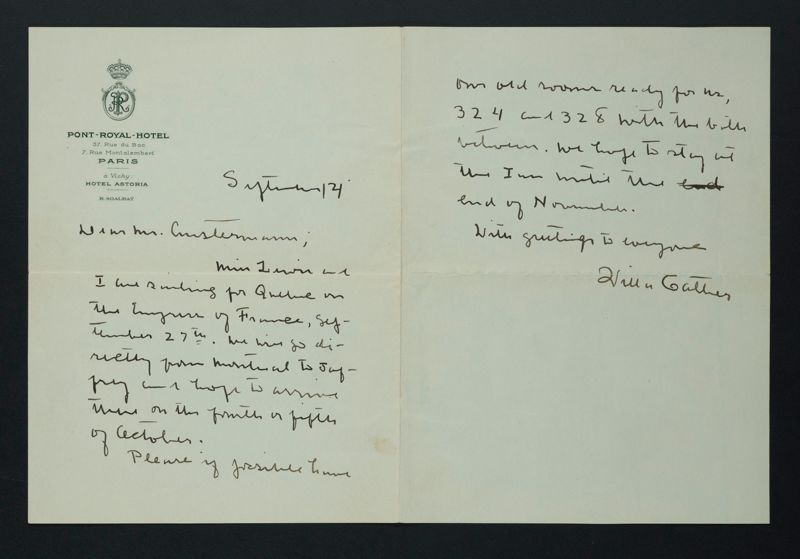 PR
PONT-ROYAL-HOTEL
37. Rue du Bac
7. Rue Montalembert
PARIS
à Vichy:
HOTEL ASTORIA
R. SOALHAT
September 4
Dear Mr. Austermann;
Miss Lewis and
I are sailing for Quebec on
the Empress of France, Sep-
tember 27th. We will go di-
rectly from Montreal to Jaf-
frey and hope to arrive
there on the fourth or fifth
of October.
Please if possible have
our old rooms ready for us,
324 and 328 with the bath
between. We hope to stay at
the Inn until the end
end of November.
With greetings to everyone
Willa Cather